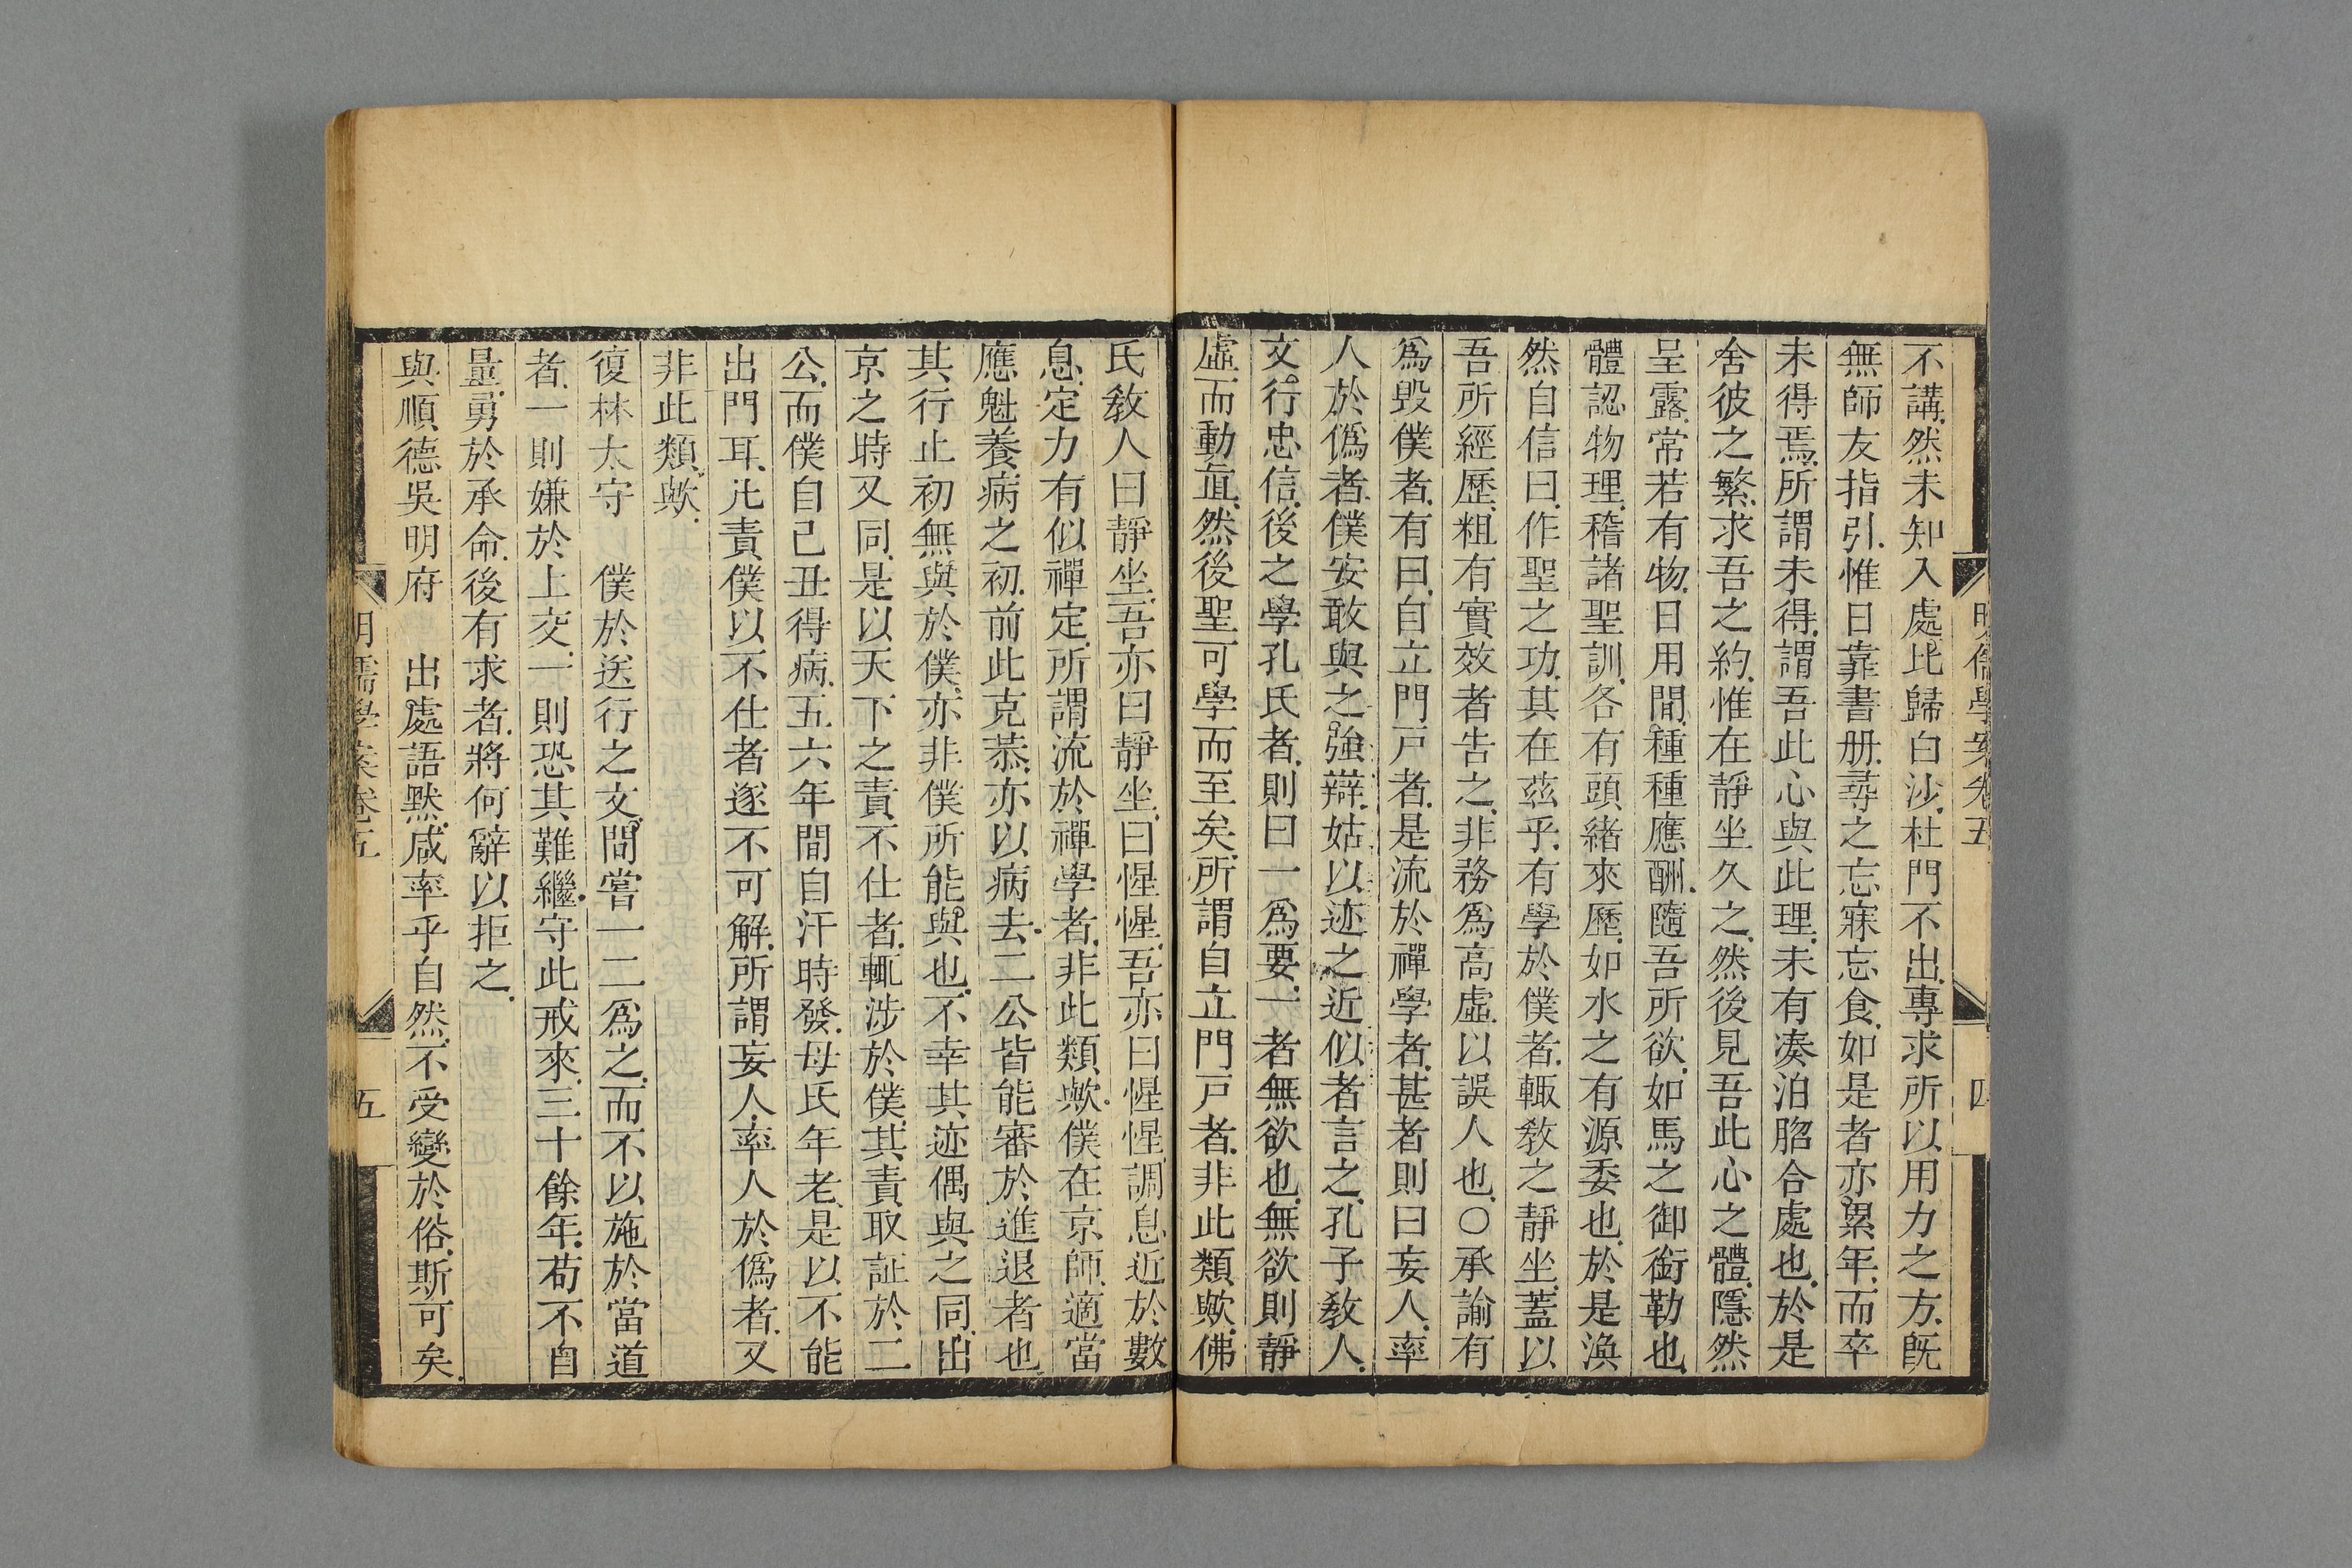 明儒學案卷五
四
不講.然未知入處.比歸白沙.杜門不出.專求所以用力之方.旣
無師友指引.惟日靠書册.尋之忘寐忘食.如是者亦累年.而卒
未得焉.所謂未得.謂吾此心與此理.未有湊泊脗合處也.於是
舍彼之繁.求吾之約.惟在靜坐久之.然後見吾此心之體.隱然
呈露.常若有物.日用間.種種應酬.隨吾所欲.如馬之御銜勒也.
體認物理.稽諸聖訓.各有頭緒來歷.如水之有源委也.於是渙
然自信曰.作聖之功.其在茲乎.有學於僕者.輒敎之靜坐.蓋以
吾所經歷.粗有實效者告之.非務爲高虛.以誤人也.○承諭有
爲毀僕者.有曰.自立門戸者.是流於禪學者.甚者則曰妄人.率
人於僞者.僕安敢與之強辯.姑以迹之近似者言之.孔子敎人.
文行忠信.後之學孔氏者.則曰一爲要.一者無欲也.無欲則靜
虛而動直.然後聖可學而至矣.所謂自立門戸者.非此類歟.佛
氏敎人曰靜坐.吾亦曰靜坐.曰惺惺.吾亦曰惺惺.調息近於數
息.定力有似禪定.所謂流於禪學者.非此類歟.僕在京師.適當
應魁養病之初.前此克恭.亦以病去.二公皆能審於進退者也.
其行止初無與於僕.亦非僕所能與也.不幸其迹偶與之同.出
京之時又同.是以天下之責.不仕者.輒涉於僕.其責取証於二
公.而僕自己丑得病.五六年間自汗時發.母氏年老.是以不能
出門耳.凡責僕以不仕者遂不可解.所謂妄人.率人於僞者.又
非此類歟.
復林太守 僕於送行之文.間嘗一二爲之.而不以施於當道
者.一則嫌於上交.一則恐其難繼.守此戒來.三十餘年.苟不自
量.勇於承命.後有求者.將何辭以拒之.
與順德吳明府 出處語默.咸率乎自然.不受變於俗.斯可矣.
明儒學案卷五
五